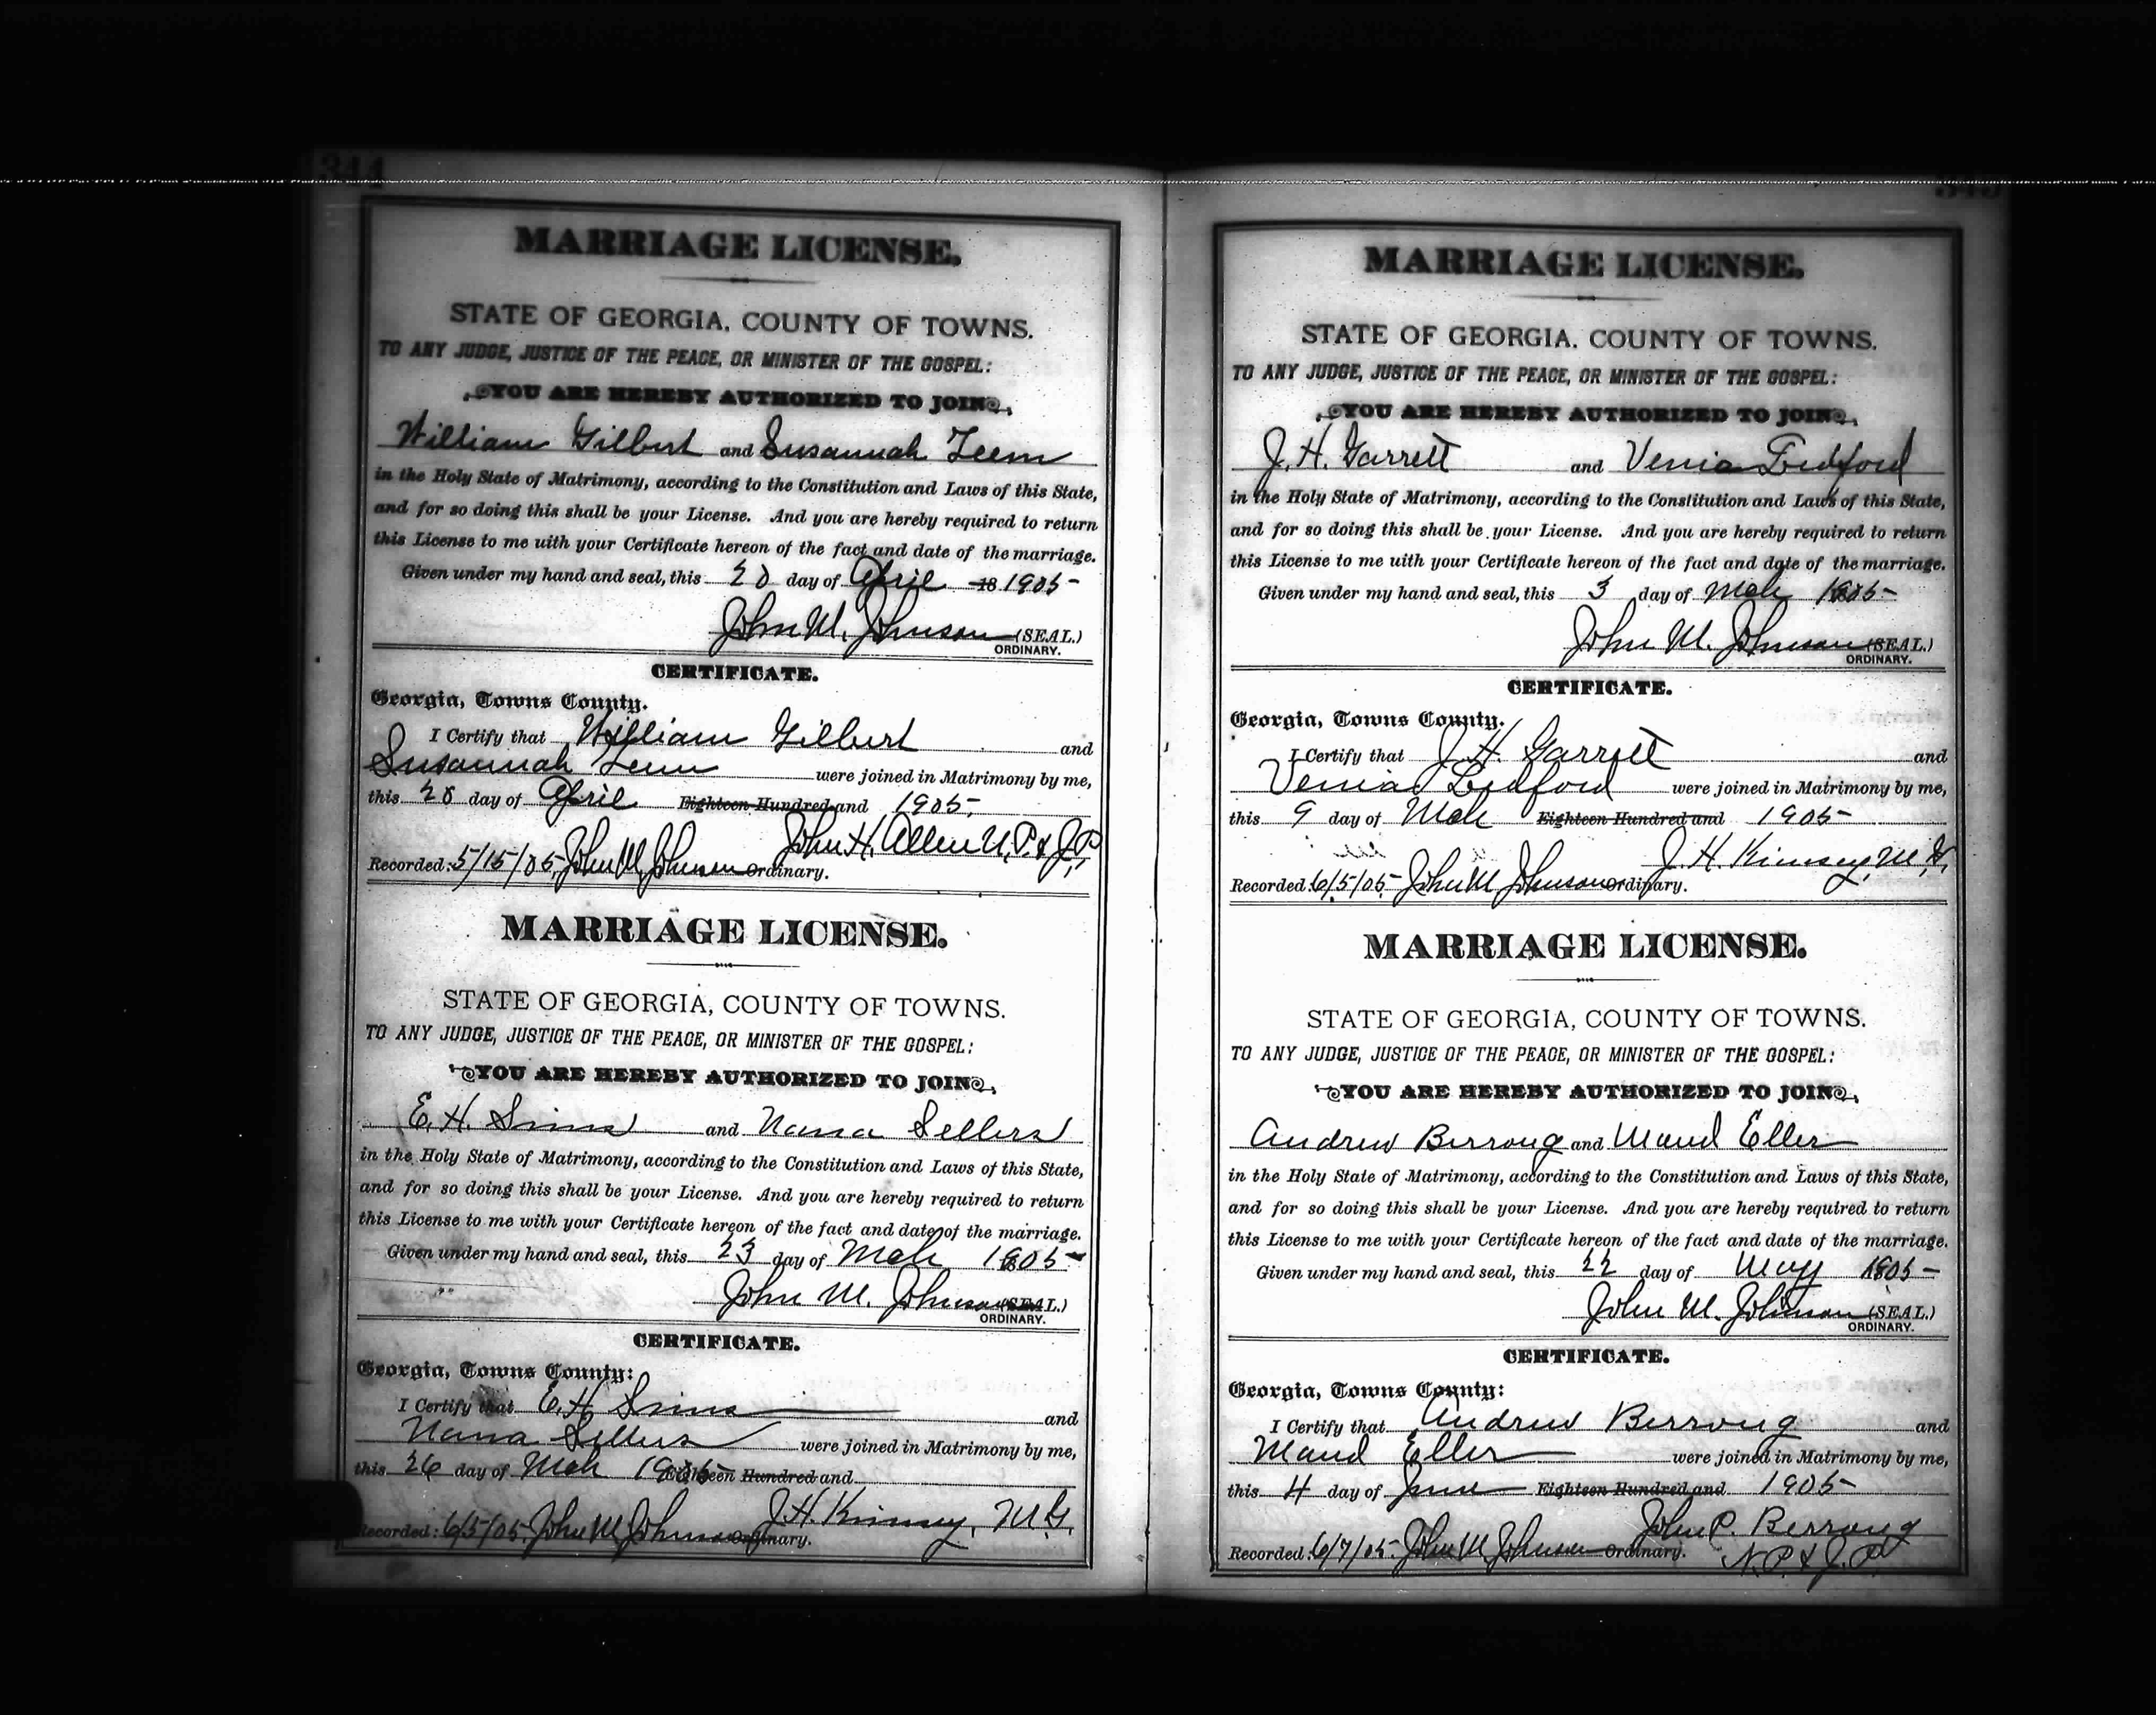 344
MARRIAGE LICENSE.
STATE OF GEORGIA, COUNTY OF TOWNS.
TO ANY JUDGE, JUSTICE OF THE PEACE, OR MINISTER OF THE GOSPEL:
YOU ARE HEREBY AUTHORIZED TO JOIN
William Gilbert and Susannah
in the Holy State of Matrimony, according to the Constitution and Laws of this State,
and for so doing this shall be your License. And you are hereby required to return
this License to me with your Certificate hereon of the fact and date of the marriage.
Given under my hand and seal, this day of April 18 1905-
John M. Johnson (SEAL.)
ORDINARY.
CERTIFICATE.
Georgia, Towns County.
I Certify that William Gilbert and
Susannah were joined in Matrimony by me,
this day of April Eighteen Hundred and 1905,
John H. Allen N.P. & J.P.
Recorded: 5/15/05, John M Johnson Ordinary.
MARRIAGE LICENSE.
STATE OF GEORGIA, COUNTY OF TOWNS.
TO ANY JUDGE, JUSTICE OF THE PEACE, OR MINISTER OF THE GOSPEL:
YOU ARE HEREBY AUTHORIZED TO JOIN
E. H. Sims and Nana Sellers
in the Holy State of Matrimony, according to the Constitution and Laws of this State,
and for so doing this shall be your License. And you are hereby required to return
this License to me with your Certificate hereon of the fact and date of the marriage.
Given under my hand and seal, this 23 day of Mch 1905-
John M. Johnson (SEAL.)
ORDINARY.
CERTIFICATE.
Georgia, Towns County:
I Certify that E. H Sims and
Nana Sellers were joined in Matrimony by me,
this 26 day of Mch 1905 Eighteen Hundred and
J. H. Kimsey, M.G.
Recorded: 6/5/05. John M Johnson Ordinary.
MARRIAGE LICENSE.
STATE OF GEORGIA, COUNTY OF TOWNS.
TO ANY JUDGE, JUSTICE OF THE PEACE, OR MINISTER OF THE GOSPEL:
YOU ARE HEREBY AUTHORIZED TO JOIN
J. H. Garrett and Venia Ledford
in the Holy State of Matrimony, according to the Constitution and Laws of this State,
and for so doing this shall be your License. And you are hereby required to return
this License to me with your Certificate hereon of the fact and date of the marriage.
Given under my hand and seal, this 3 day of Mch 1905-
John M. Johnson (SEAL.)
ORDINARY.
CERTIFICATE.
Georgia, Towns County.
I Certify that J. H. Garrett and
Venia Ledford were joined in Matrimony by me,
this 9 day of Mch Eighteen Hundred and 1905-
J. H. Kimsey, M.G.
Recorded: 6/5/05- John M Johnson Ordinary.
MARRIAGE LICENSE.
STATE OF GEORGIA, COUNTY OF TOWNS.
TO ANY JUDGE, JUSTICE OF THE PEACE, OR MINISTER OF THE GOSPEL:
YOU ARE HEREBY AUTHORIZED TO JOIN
Andrew Berrong and Maud Eller
in the Holy State of Matrimony, according to the Constitution and Laws of this State,
and for so doing this shall be your License. And you are hereby required to return
this License to me with your Certificate hereon of the fact and date of the marriage.
Given under my hand and seal, this 22 day of May 1905-
John M. Johnson (SEAL.)
ORDINARY.
CERTIFICATE.
Georgia, Towns County:
I Certify that Andrew Berrong and
Maud Eller were joined in Matrimony by me,
this 4 day of June Eighteen Hundred and 1905-
John P. Berrong
Recorded: 6/7/05- John M Johnson Ordinary. N.P. & J.P.